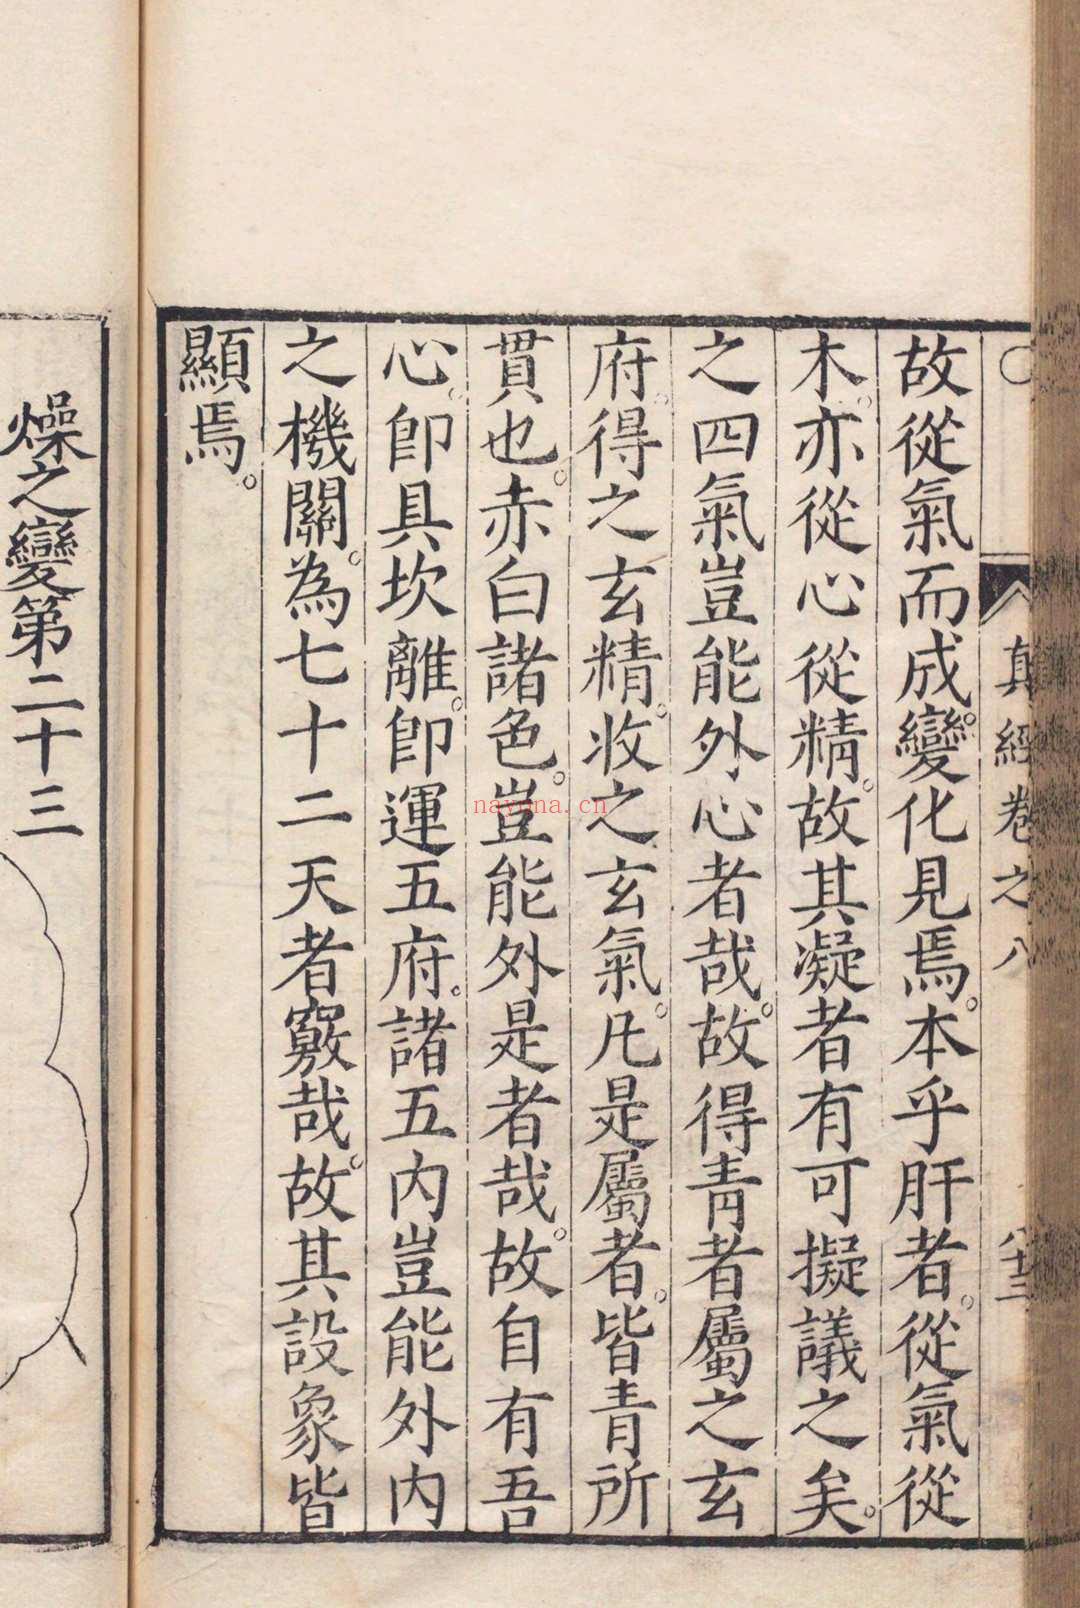 真經卷之八
八十三
故從氣而成變化見焉。本乎肝者。從氣從
木。亦從心從精。故其凝者有可擬議之矣。
之四氣豈能外心者哉。故得青者屬之玄
府。得之玄精。收之玄氣。凡是屬者。皆青所
貫也。赤白諸色。豈能外是者哉。故自有吾
心。卽具坎離。卽運五府。諸五内豈能外内
之機關。為七十二天者竅哉。故其設象皆
顯焉。
燥之變第二十三
nayona.cn